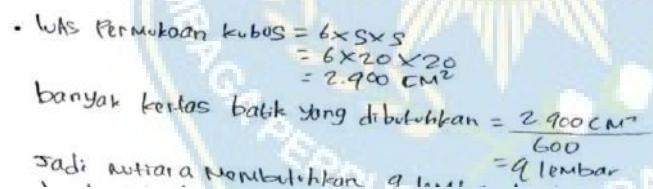 • Luas Permukaan kubus = 6 x S x S
= 6 x 20 x 20
= 2.900 CM²
banyak kertas batik yang dibutuhkan = 2.900 CM²
600
= 9 lembar
Jadi Mutiara Membutuhkan 9